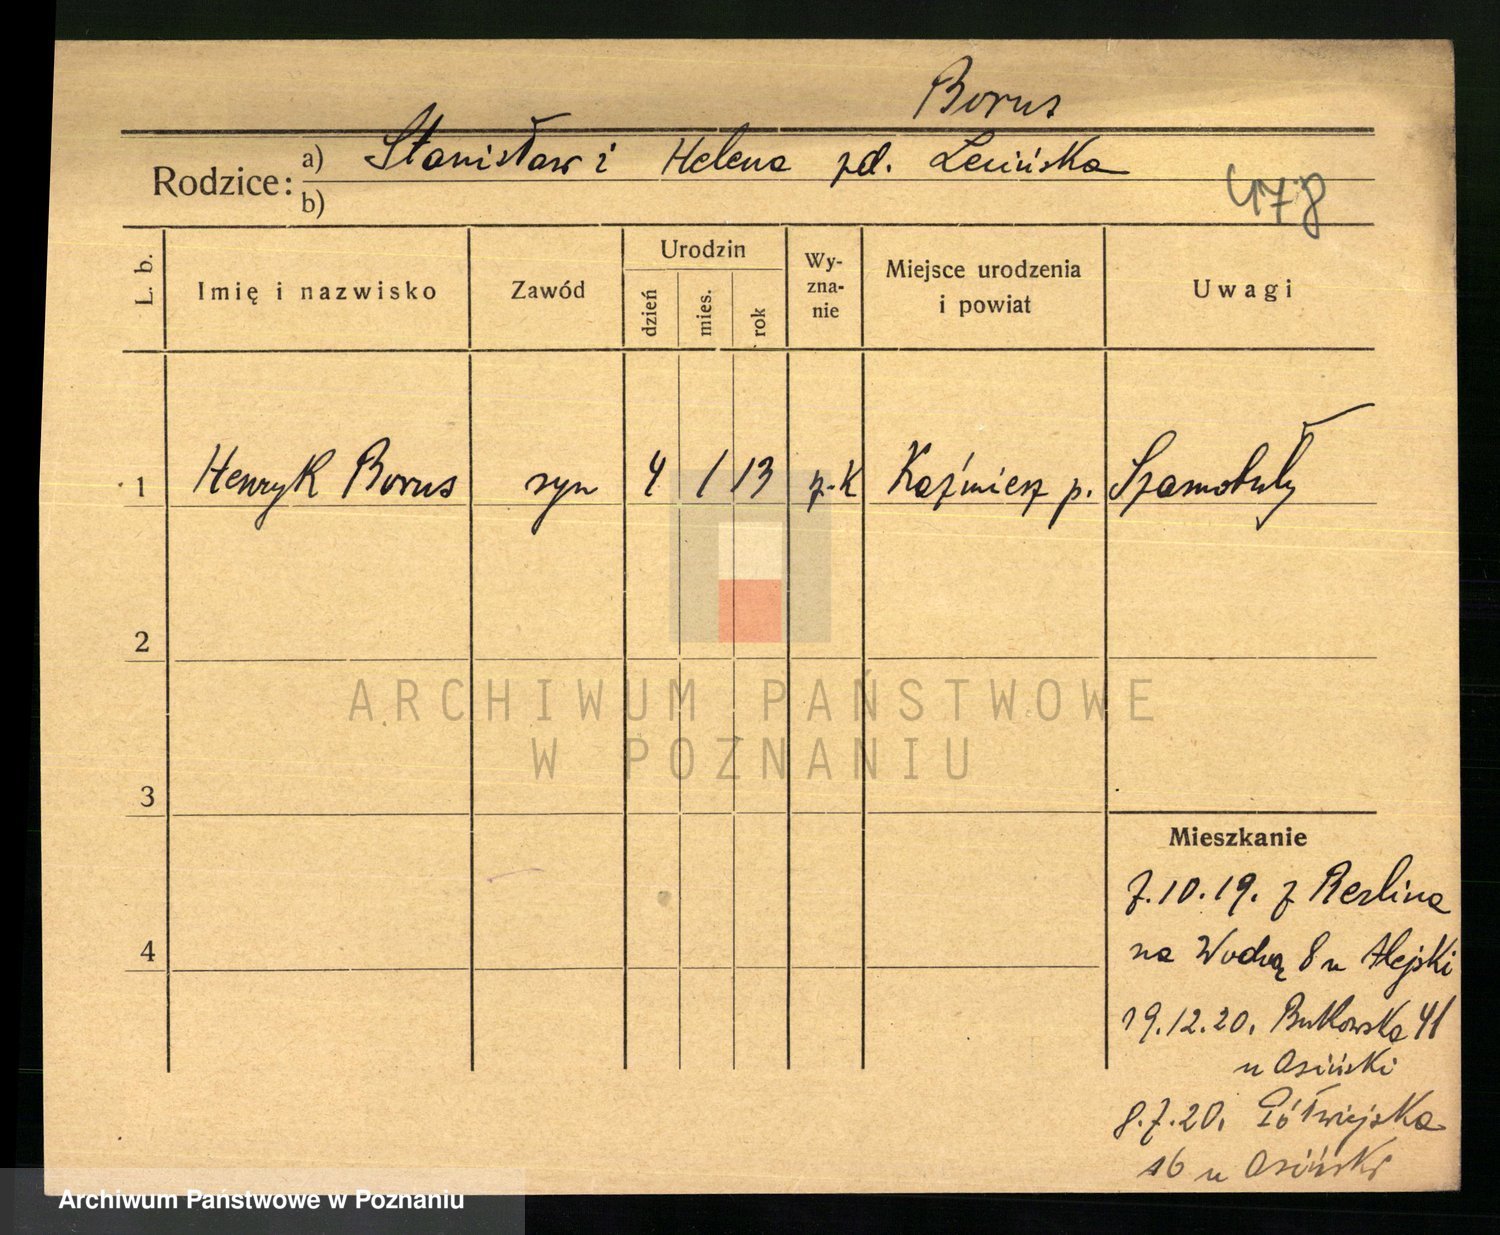 Borus
Rodzice: a) Stanisław i Helena zd. Lesińska
b)
478
L. b. Imię i nazwisko Zawód Urodzin dzień mies. rok Wyznanie Miejsce urodzenia i powiat Uwagi
1 Henryk Borus syn 4 1 13 rz-K Kaźmierz p. Szamotuły
2
3
4
Mieszkanie
7.10.19. z Berlina
na Wodną 8 u Alejski
19.12.20. Bukowska 41
u Osiński
8.7.20. Półwiejska
16 u Osiński
ARCHIWUM PAŃSTWOWE
W POZNANIU
Archiwum Państwowe w Poznaniu